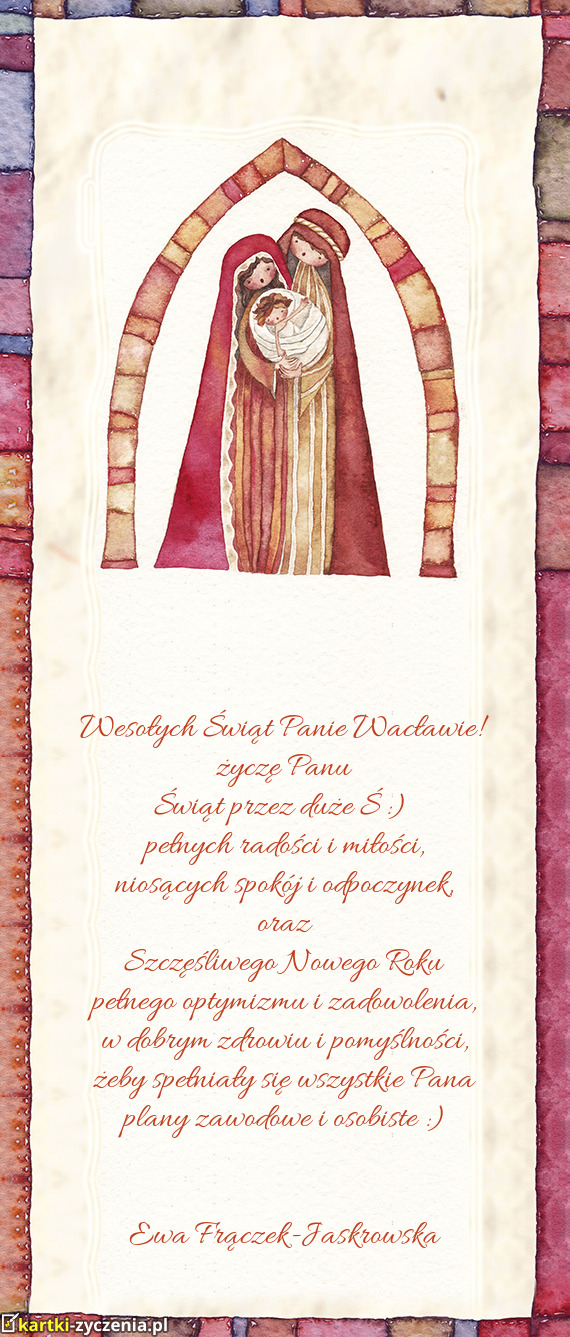 Wesołych Świąt Panie Wacławie!
życzę Panu
Świąt przez duże Ś :)
pełnych radości i miłości,
niosących spokój i odpoczynek,
oraz
Szczęśliwego Nowego Roku
pełnego optymizmu i zadowolenia,
w dobrym zdrowiu i pomyślności,
żeby spełniały się wszystkie Pana
plany zawodowe i osobiste :)
Ewa Frączek-Jaskrowska
kartki-zyczenia.pl